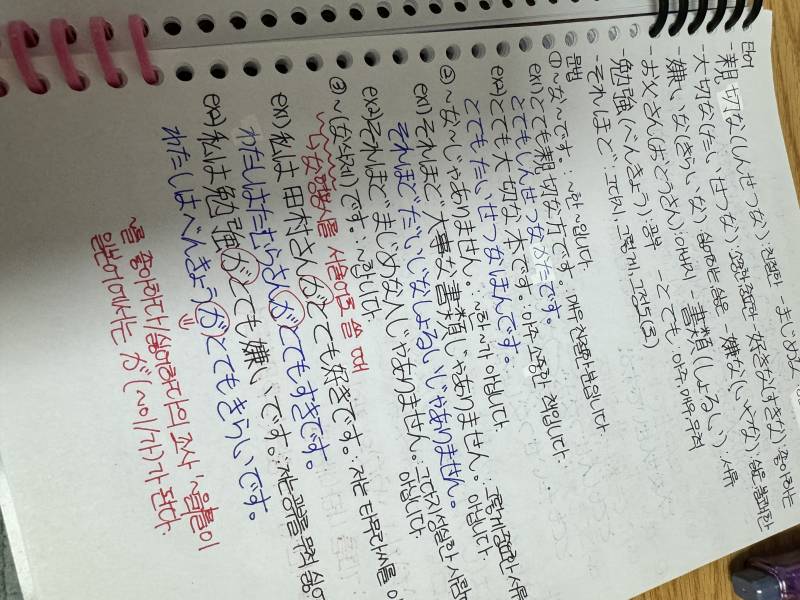 단어
-親切な(しんせつな):친절한 -まじめな
-大切な(たいせつな):소중한,중요한 -好きな(すきな):좋아하는
-嫌いな(きらいな):싫어하는,싫은 -嫌な(いやな):싫은,불쾌한
-お父さん(おとうさん):아버지 -書類(しょるい):서류
-勉強(べんきょう):공부 -とても:아주,매우,무척
-それほど:그다지,그렇게,그정도(로)
문법
①~な~です。:~한 ~입니다.
ex1)とても親切な方です。매우 친절한 분입니다.
とてもしんせつなかたです。
ex2)とても大切な本です。아주 소중한 책입니다.
とてもたいせつなほんです。
②~な~じゃありません。 ~한 ~가 아닙니다.
ex1)それほど大事な書類じゃありません。그렇게 중요한 서류 아닙니다.
それほどだいじなしょるいじゃありません。
ex2)それほどまじめな人じゃありません。그다지 성실한 사람 아닙니다.
③~(な삭제)です。:~합니다.
な형용사를 서술어로 쓸 때
ex1)私は田村さんがとても好きです。:저는 타무라씨를
わたしはたむらさんがとてもすきです。
ex2)私は勉強がとても嫌いです。저는 공부를 무척 싫어
わたしはべんきょうがとてもきらいです。
~를 좋아하다/싫어하다의 조사 '~을/를'이
일본어에서는 が(~이/가)가 된다.